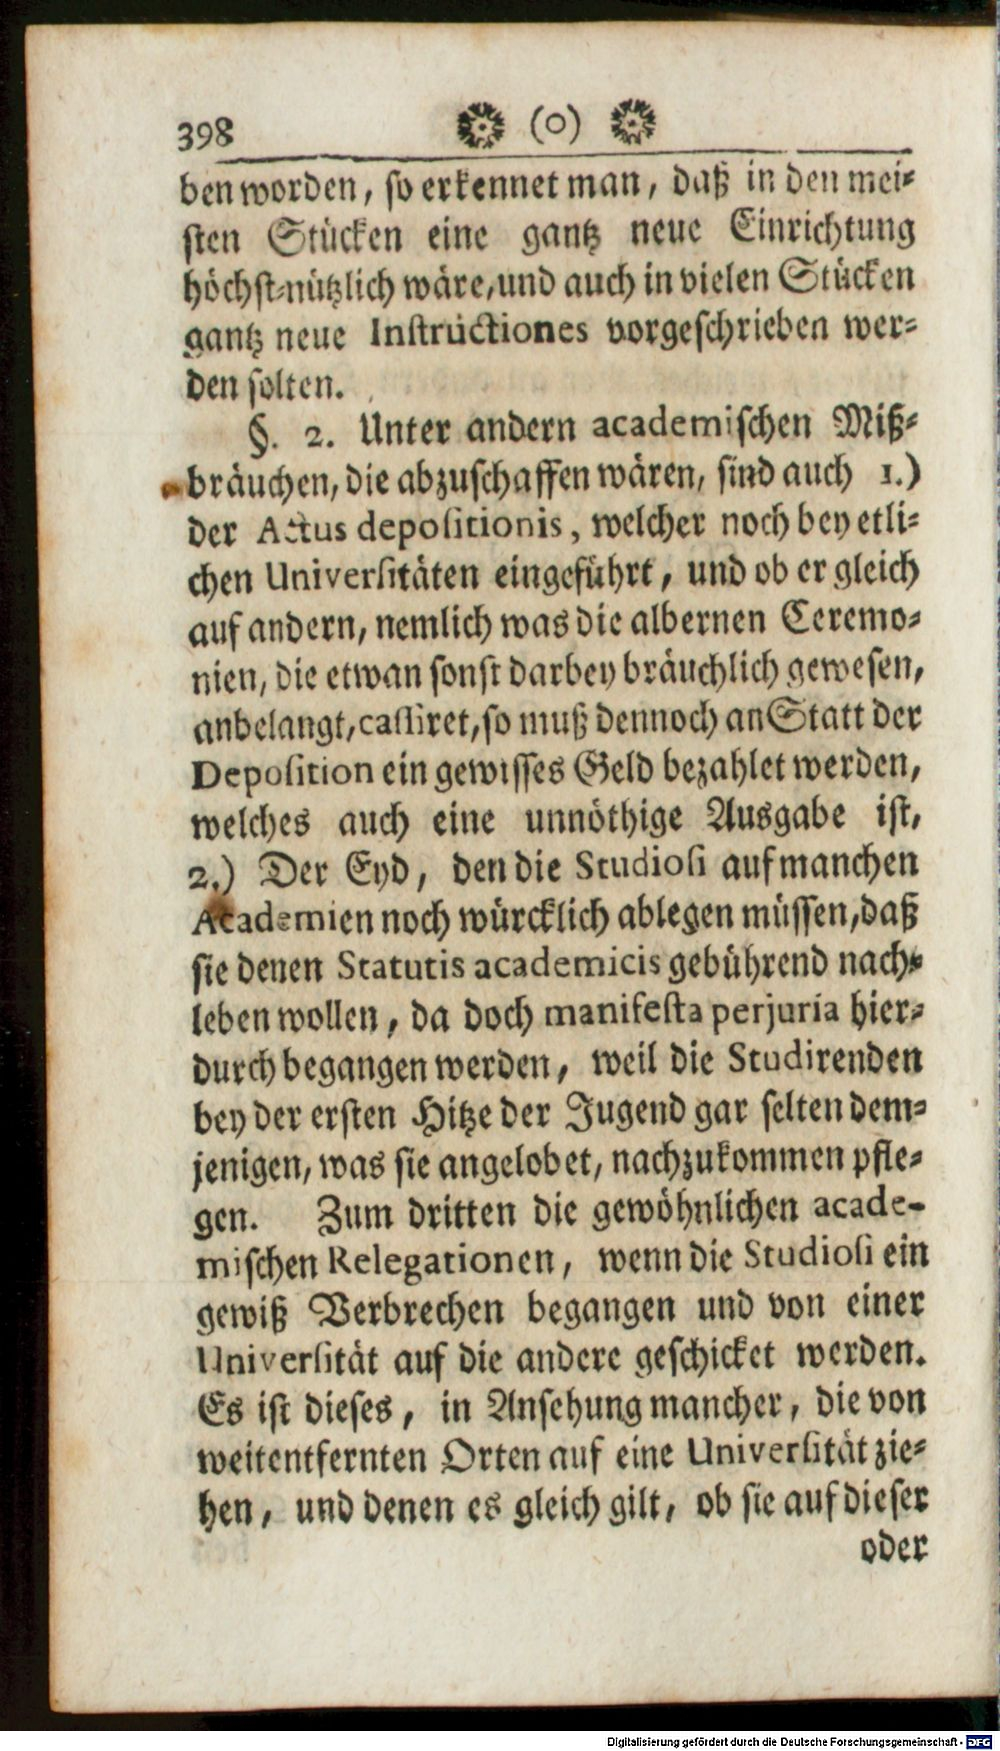 398 (o)
ben worden, so erkennet man, daß in den mei-
sten Stücken eine gantz neue Einrichtung
höchst-nützlich wäre, und auch in vielen Stücken
gantz neue Instructiones vorgeschrieben wer-
den solten.
§. 2. Unter andern academischen Miß-
bräuchen, die abzuschaffen wären, sind auch 1.)
der Actus depositionis, welcher noch bey etli-
chen Universitäten eingeführt, und ob er gleich
auf andern, nemlich was die albernen Ceremo-
nien, die etwan sonst darbey bräuchlich gewesen,
anbelangt, cassiret, so muß dennoch an Statt der
Deposition ein gewisses Geld bezahlet werden,
welches auch eine unnöthige Ausgabe ist,
2.) Der Eyd, den die Studiosi auf manchen
Academien noch würcklich ablegen müssen, daß
sie denen Statutis academicis gebührend nach-
leben wollen, da doch manifesta perjuria hier-
durch begangen werden, weil die Studirenden
bey der ersten Hitze der Jugend gar selten dem-
jenigen, was sie angelobet, nachzukommen pfle-
gen. Zum dritten die gewöhnlichen acade-
mischen Relegationen, wenn die Studiosi ein
gewiß Verbrechen begangen und von einer
Universität auf die andere geschicket werden.
Es ist dieses, in Ansehung mancher, die von
weitentfernten Orten auf eine Universität zie-
hen, und denen es gleich gilt, ob sie auf dieser
oder
Digitalisierung gefördert durch die Deutsche Forschungsgemeinschaft - DFG